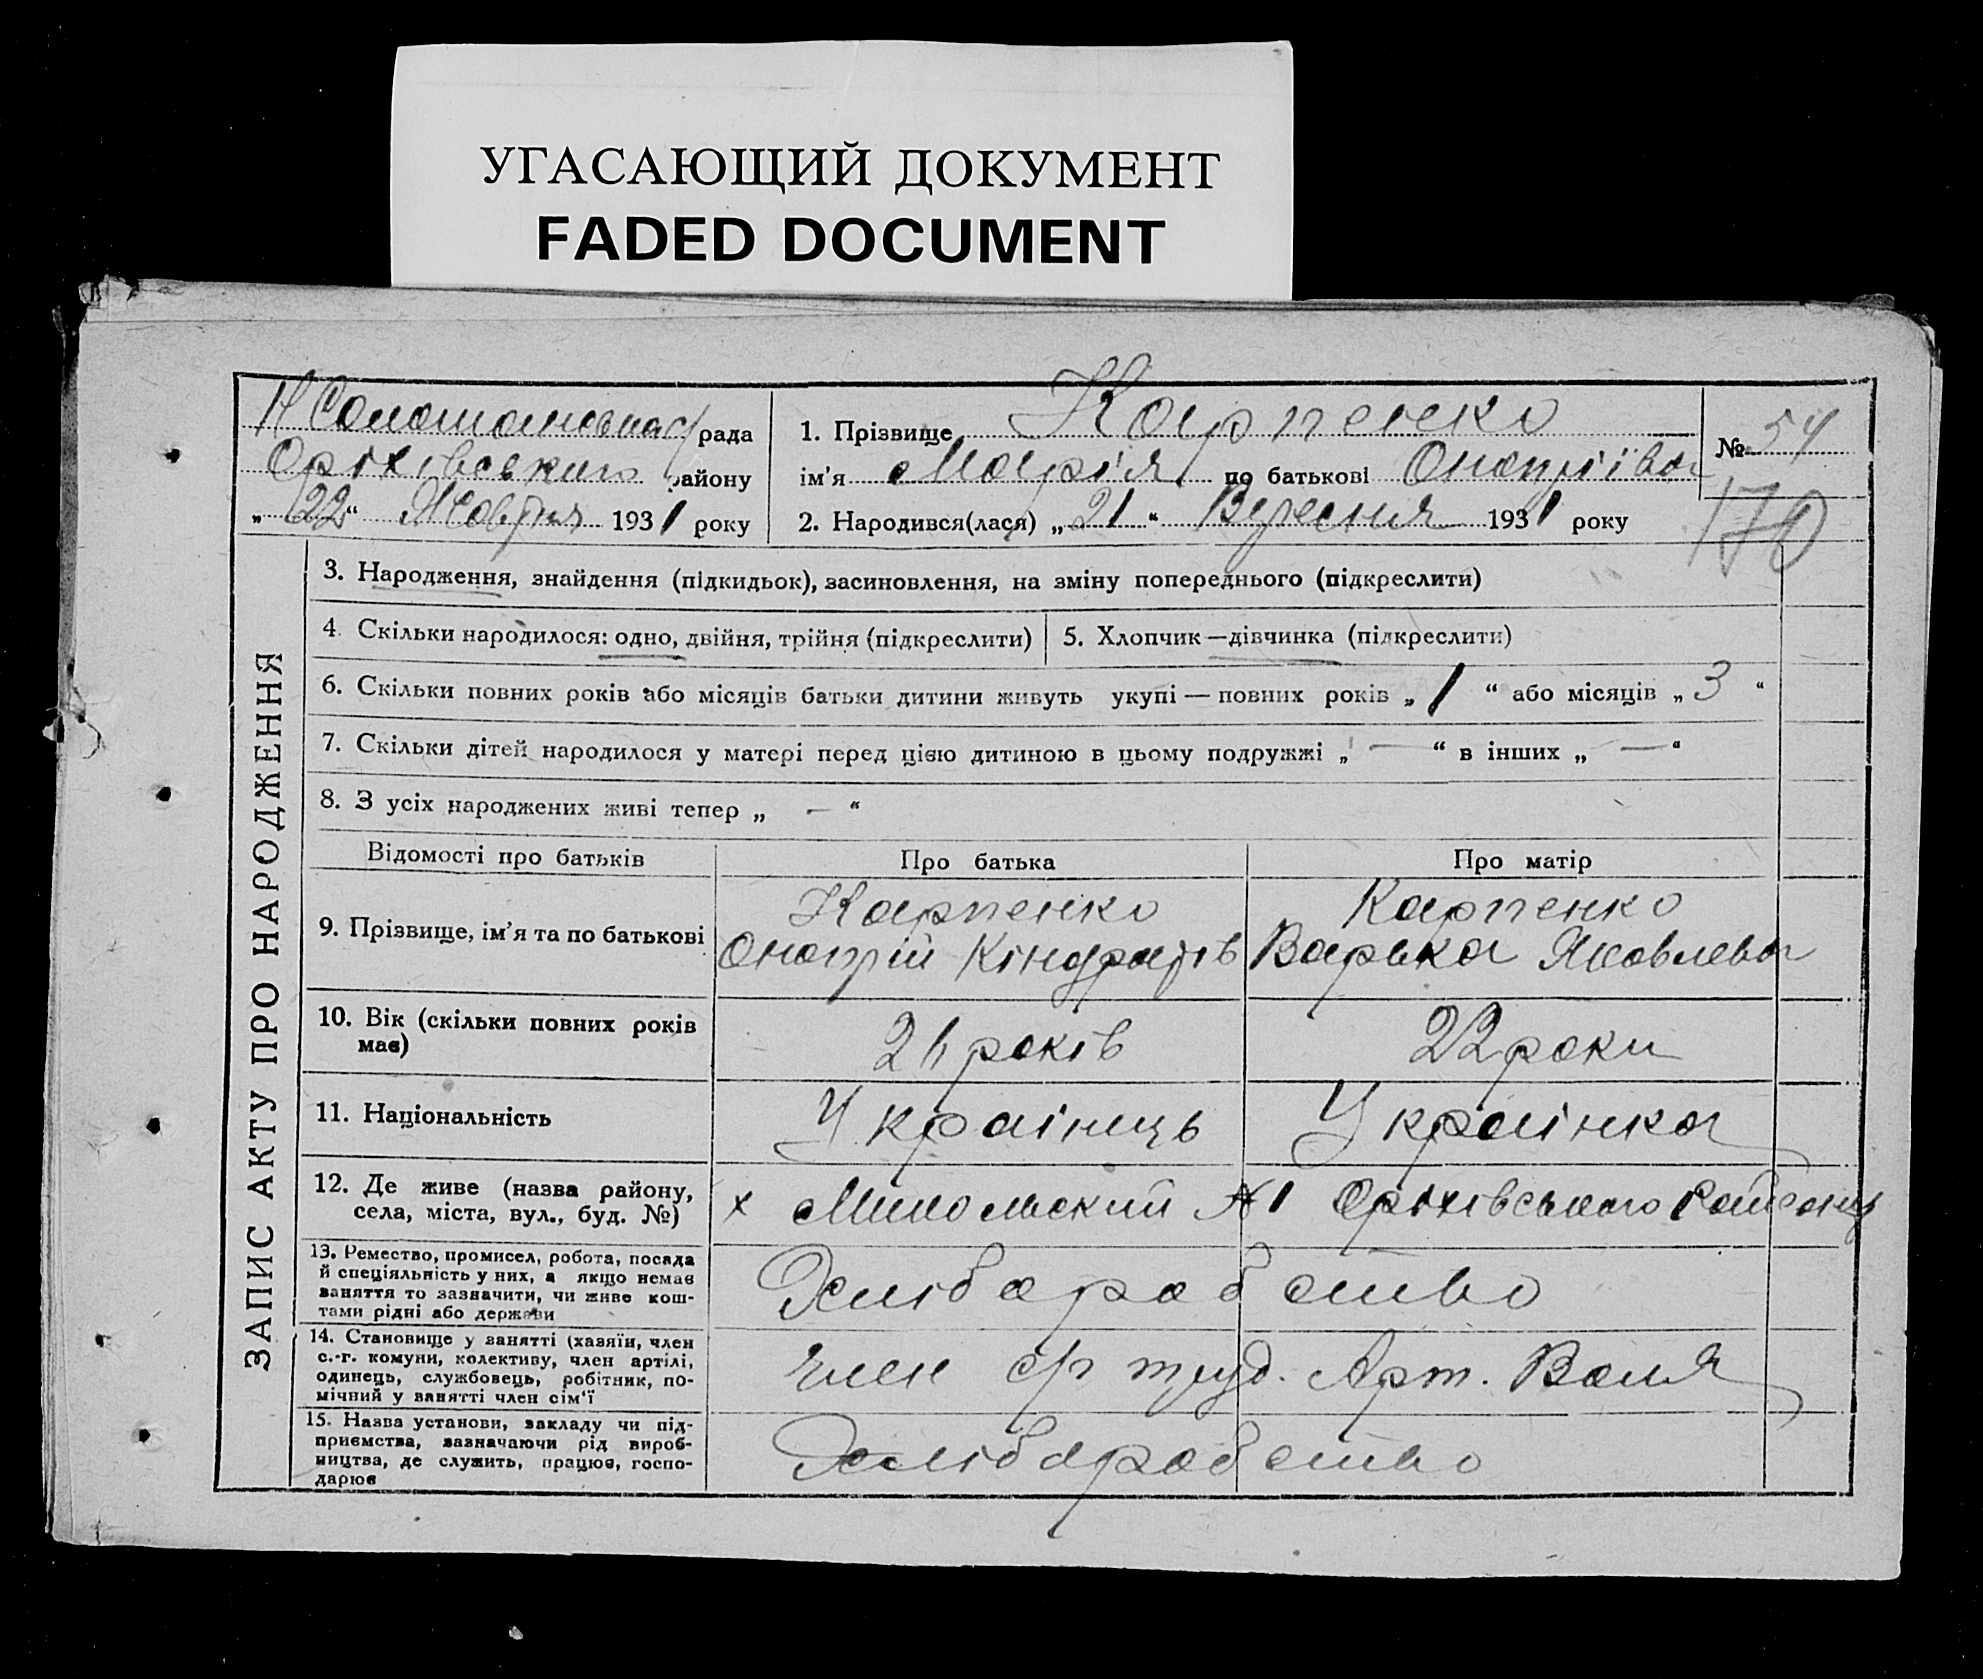 УГАСАЮЩИЙ ДОКУМЕНТ
FADED DOCUMENT
рада
Оріхівського району
„22“ Жовтня 1931 року
1. Прізвище Карпенко
ім'я Марія по батькові Онопріїва
2. Народився(лася) „21“ Вересня 1931 року
№ 54
170
ЗАПИС АКТУ ПРО НАРОДЖЕННЯ
3. Народження, знайдення (підкидьок), засиновлення, на зміну попереднього (підкреслити)
4. Скільки народилося: одно, двійня, трійня (підкреслити)
5. Хлопчик—дівчинка (підкреслити)
6. Скільки повних років або місяців батьки дитини живуть укупі — повних років „1“ або місяців „3“
7. Скільки дітей народилося у матері перед цією дитиною в цьому подружжі „—“ в інших „—“
8. З усіх народжених живі тепер „—“
Відомості про батьків
Про батька
Про матір
9. Прізвище, ім'я та по батькові
Карпенко
Онопрій Кіндратів
Карпенко
Варька Яковлева
10. Вік (скільки повних років
має)
21 років
22 роки
11. Національність
Українець
Українка
12. Де живе (назва району,
села, міста, вул., буд. №)
х №1 Оріхівського Району
13. Ремество, промисел, робота, посада
й спеціяльність у них, а якщо немає
заняття то зазначити, чи живе кош-
тами рідні або держави
Хлібаробство
14. Становище у занятті (хазяїн, член
с.-г. комуни, колективу, член артілі,
одинець, службовець, робітник, по-
мічний у занятті член сім'ї
Член с/г труд. Арт. Воля
15. Назва установи, закладу чи під-
приємства, зазначаючи рід вироб-
ництва, де служить, працює, госпо-
дарює
Хлібаробство